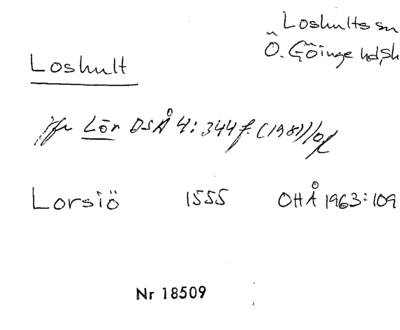 Loshults sn
Ö. Göinge hd, Sk
Loshult
jfr Lör DSÅ 4: 344 f. (1981)
Lorsiö 1555 OHÅ 1963:109
Nr 18509